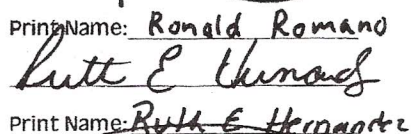 Print Name: Ronald Romano
Ruth E
Print Name: Ruth E Hernandez